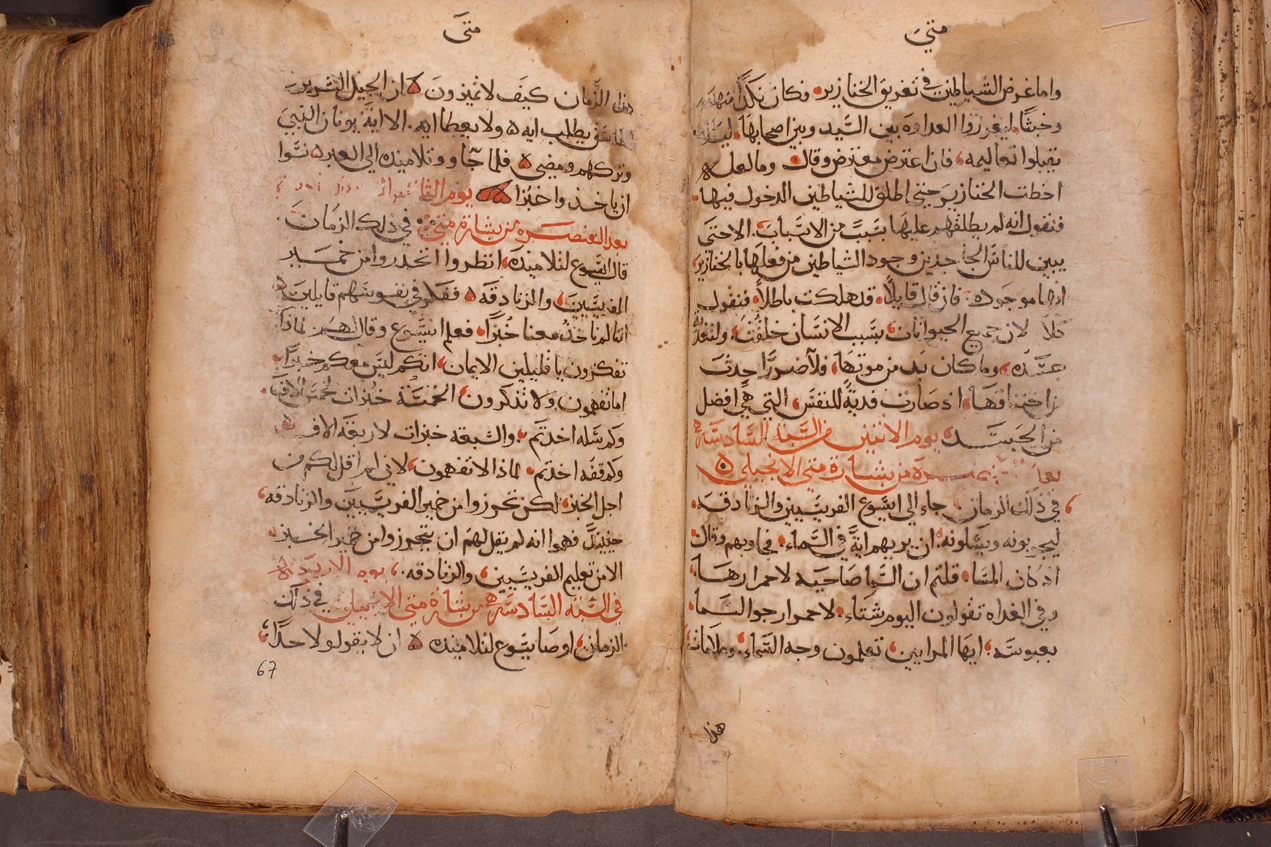 متى
واما غرض الشياطين في تغريق الخنازير فكان نكدًا منهم
وخبثًا ليغرزوا العداوة بين السيد وبين اصحابها
يقبلوا تعاليمه فان اعترض معترض وقال وما لعله
اخطت الخنازير حتى اطلق للشياطين الدخول فيها
فنقول انه لم يطلقهم عليها بسبب من الاسباب الا حتى
يبين للناس الجاحدين وجود الشياطين من فعلها بالخنازير
انها موجوده فان قال قايلًا قد هلكت باطلًا فنقول
كلا لان جميع الحيوانات بسبب الانسان خلقت
وما كان بد من موتها ولا ضورًا حدث
اذ صارت فدية للنفس التي هي افضل
من الجسد يوم الاثنين من السنه السادسه
من بشارة متى الانجيلي
في ذلك الزمان جاء الى ايسوع الفريسيين والزنادقه
ليجربونه ويسلونه ان يريهم اية في السماء فجاوبهم وقال
اذا كان المسا قلتم ان السما صاحيه لاحمرارها
وفي الغداه تقولون اليوم شتاء لاحمرار جو السما
بعبوسه ايها المرايين تعلمون وجه السماء وعلامات
هذا
متى
هذا الزمان كيف لا تميزون ان الجيل الشرير
الفاسق يطلب ايه ولا يعطا ايه الا اية يونان النبي
وتركهم ومضى فلما جاوو تلاميذه الى العبر نسوا
ان ياخذوا خبزا يوم الثا
بعد العنصره من بشارة متى في ذلك الزمان
قال ايسوع لتلاميذه انظروا اتحدروا من خمير
الفريسيين والزنادقه ففكروا في نفوسهم قايلين
اننا لم ناخذ معنا خبزًا فعلم ايسوع وقال لهم لماذا
تفكرون يا قليلين الايمان انكم ليس معكم خبزًا
اما تفهمون ولا تذكرون الخمسة خبزات لخمس الاف
وكم سله اخدتم والسبعه خبزات لاربعة الاف
وكم قفه اخدتم لماذا لا تفهمون لاني لم اقل لكم من
اجل الخبز لكن تحرزوا من خمير الفريسيين والزنادقه
حينيذ فهموا انه لم يقل لهم ان يتحرزوا من خمير الخبز
الا من تعليم الفريسيين والزنادقه يوم الاربعا
في السنه السادسه من بشارة متى الانجيلي في ذلك
الزمان اوصا يسوع لتلاميذه ان لا يقولو لاحدًا
67